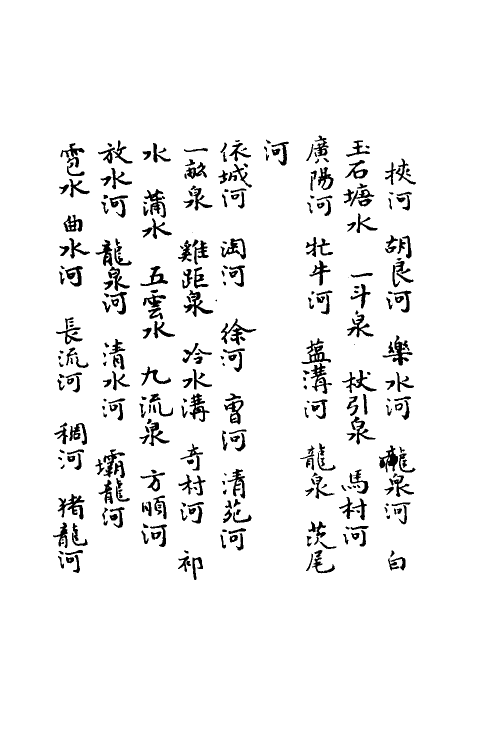 挾河 胡良河 樂水河 龍泉河 白
玉石塘水 一斗泉 杖引泉 馬村河
廣陽河 牤牛河 蕰溝河 龍泉 茨尾
河
依城河 淘河 徐河 曹河 清苑河
一畝泉 雞距泉 冷水溝 奇村河 祁
水 蒲水 五雲水 九流泉 方順河
放水河 龍泉河 清水河 壩龍河
雹水 曲水河 長流河 稠河 猪龍河